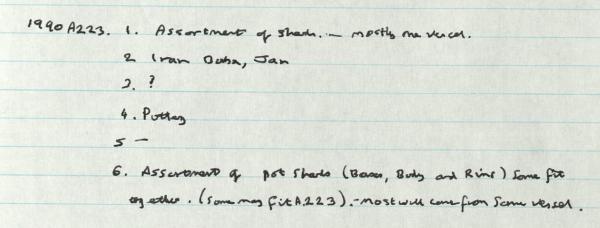 1990 A223. 1. Assortment of sherds. - mostly one vessel.
2 Iran Daba, Jan
3. ?
4. Pottery
5 -
6. Assortment of pot sherds (Bases, Body and Rims) Some fit
together. (some may fit A223). - most will come from same vessel.